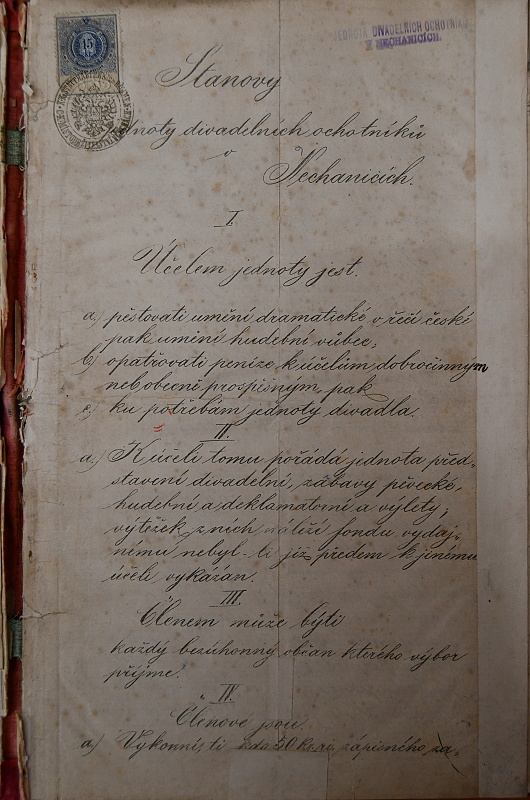 15
JEDNOTA DIVADELNÍCH OCHOTNÍKŮ
V NECHANICÍCH.
Stanovy
dnoty divadelních ochotníků
v
Nechanicích.
I.
Účelem jednoty jest.
a.) pěstovati umění dramatické v řeči české
pak umění hudební vůbec;
b) opatřovati peníze k účelům dobročinným
neb obecně prospěšným, pak
c) ku potřebám jednoty divadla.
II.
a.) K účeli tomu pořádá jednota před-
stavení divadelní, zábavy pěvecké,
hudební a deklamatorní a výlety;
výtěžek z nich náleží fondu vydaj-
nému nebyl-li již předem k jinému
účeli vykázán.
III.
Členem může býti
každý bezúhonný občan kterého výbor
přijme.
IV.
Členové jsou.
a) Vykonní, ti 50 kr. zápisného za-